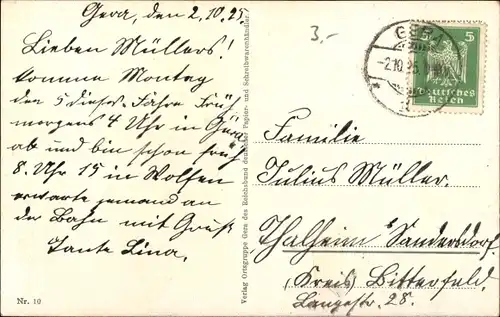 Gera, den 2.10.25.
Lieben Müllers!
komme Montag
den 5 dieses. Fahre Früh
morgens 4 Uhr in Gera
ab und bin schon früh
8. Uhr 15 in Wolfen
erwarte jemand an
der Bahn mit Gruß
Tante Lina.
Nr. 10
Verlag Ortsgruppe Gera des Reichsbund deutscher Papier- und Schreibwarenhändler.
3,-
GERA
-2.10.25
5 5
Deutsches
Reich
Familie
Julius Müller.
Thalheim Sandersdorf.
Kreis Bitterfeld.
Langestr. 28.